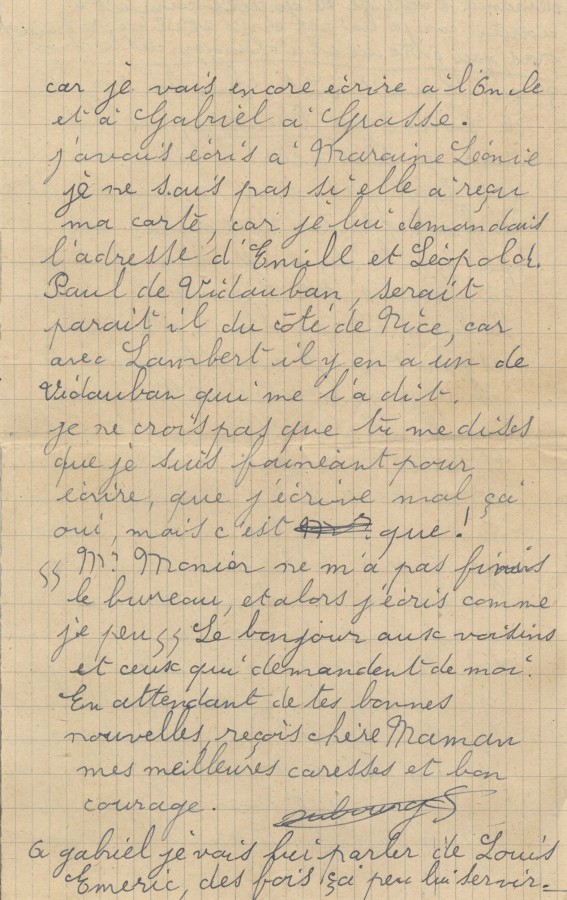 car je vais encore écrire a l'Oncle
et à Gabriel à Grasse.
j'avais écris à Maraine Léonie
je ne sais pas si elle a reçu
ma carte, car je lui demandais
l'adresse d'Emill et Léopold.
Paul de Vidauban, serait
parait il du côté de Nice, car
avec Lambert il y en a un de
Vidauban qui me l'a dit.
je ne crois pas que tu me dises
que je suis fainéant pour
écrire, que j'écrive mal ça
oui, mais c'est que!
"Mr Monier ne m'a pas finis
le bureau, et alors j'écris comme
je peu" Le bonjour aux voisins
et ceux qui demandent de moi.
En attendant de tes bonnes
nouvelles, reçois chère Maman
mes meilleures caresses et bon
courage.
A gabriel je vais lui parler de Louis
Emeric, des fois ça peu lui servir.